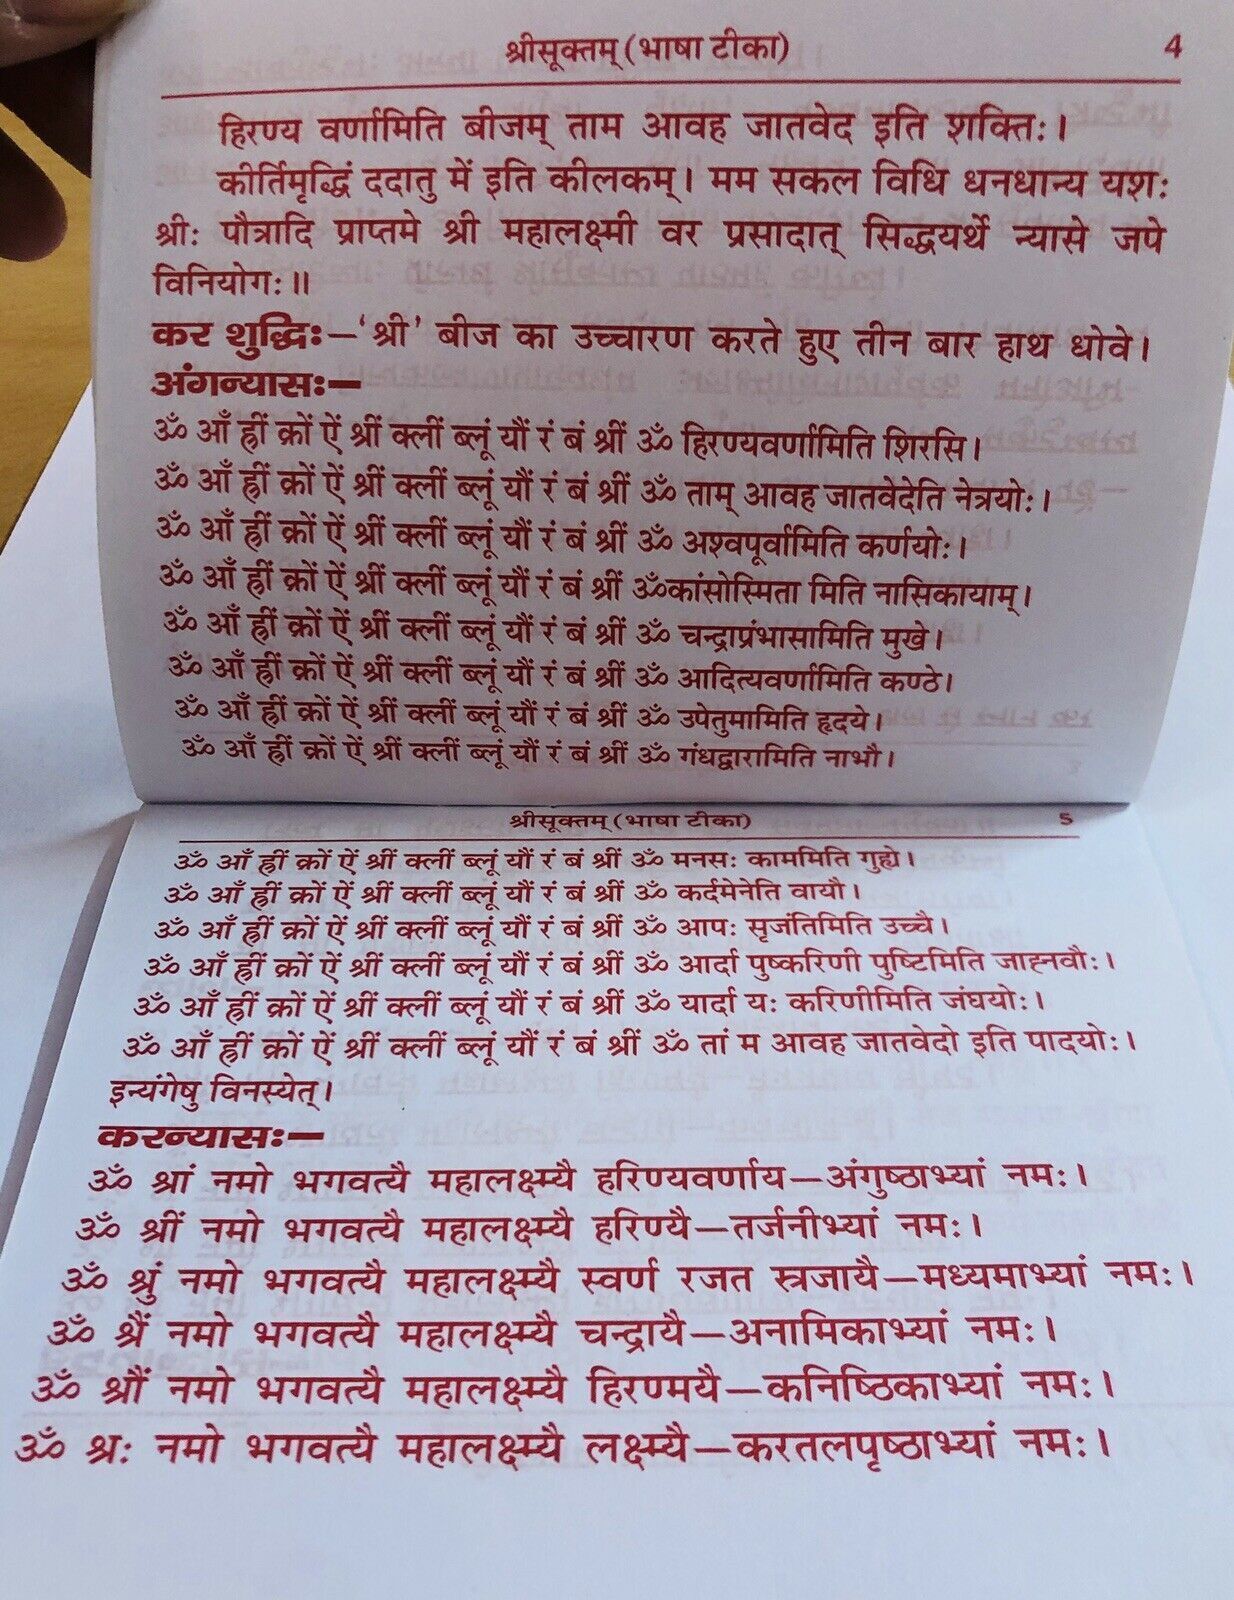 श्रीसूक्तम् (भाषा टीका) 4
हिरण्य वर्णामिति बीजम् ताम आवह जातवेद इति शक्तिः।
कीर्तिमृद्धिं ददातु में इति कीलकम्। मम सकल विधि धनधान्य यशः
श्रीः पौत्रादि प्राप्तमे श्री महालक्ष्मी वर प्रसादात् सिद्धयर्थे न्यासे जपे
विनियोगः॥
कर शुद्धिः–‘श्री’ बीज का उच्चारण करते हुए तीन बार हाथ धोवे।
अंगन्यासः–
ॐ आँ ह्रीं क्रों ऐं श्रीं क्लीं ब्लूं यौं रं बं श्रीं ॐ हिरण्यवर्णामिति शिरसि।
ॐ आँ ह्रीं क्रों ऐं श्रीं क्लीं ब्लूं यौं रं बं श्रीं ॐ ताम् आवह जातवेदेति नेत्रयोः।
ॐ आँ ह्रीं क्रों ऐं श्रीं क्लीं ब्लूं यौं रं बं श्रीं ॐ अश्वपूर्वामिति कर्णयोः।
ॐ आँ ह्रीं क्रों ऐं श्रीं क्लीं ब्लूं यौं रं बं श्रीं ॐकांसोस्मिता मिति नासिकायाम्।
ॐ आँ ह्रीं क्रों ऐं श्रीं क्लीं ब्लूं यौं रं बं श्रीं ॐ चन्द्राप्रंभासामिति मुखे।
ॐ आँ ह्रीं क्रों ऐं श्रीं क्लीं ब्लूं यौं रं बं श्रीं ॐ आदित्यवर्णामिति कण्ठे।
ॐ आँ ह्रीं क्रों ऐं श्रीं क्लीं ब्लूं यौं रं बं श्रीं ॐ उपेतुमामिति हृदये।
ॐ आँ ह्रीं क्रों ऐं श्रीं क्लीं ब्लूं यौं रं बं श्रीं ॐ गंधद्वारामिति नाभौ।
श्रीसूक्तम् (भाषा टीका) 5
ॐ आँ ह्रीं क्रों ऐं श्रीं क्लीं ब्लूं यौं रं बं श्रीं ॐ मनसः काममिति गुह्ये।
ॐ आँ ह्रीं क्रों ऐं श्रीं क्लीं ब्लूं यौं रं बं श्रीं ॐ कर्दमेनेति वायौ।
ॐ आँ ह्रीं क्रों ऐं श्रीं क्लीं ब्लूं यौं रं बं श्रीं ॐ आपः सृजंतिमिति उच्चै।
ॐ आँ ह्रीं क्रों ऐं श्रीं क्लीं ब्लूं यौं रं बं श्रीं ॐ आर्दा पुष्करिणी पुष्टिमिति जाह्नवौः।
ॐ आँ ह्रीं क्रों ऐं श्रीं क्लीं ब्लूं यौं रं बं श्रीं ॐ यार्दा यः करिणीमिति जंघयोः।
ॐ आँ ह्रीं क्रों ऐं श्रीं क्लीं ब्लूं यौं रं बं श्रीं ॐ तां म आवह जातवेदो इति पादयोः।
इन्यंगेषु विनस्येत्।
करन्यासः–
ॐ श्रां नमो भगवत्यै महालक्ष्म्यै हरिण्यवर्णाय–अंगुष्ठाभ्यां नमः।
ॐ श्रीं नमो भगवत्यै महालक्ष्म्यै हरिण्यै–तर्जनीभ्यां नमः।
ॐ श्रुं नमो भगवत्यै महालक्ष्म्यै स्वर्ण रजत स्त्रजायै–मध्यमाभ्यां नमः।
ॐ श्रैं नमो भगवत्यै महालक्ष्म्यै चन्द्रायै–अनामिकाभ्यां नमः।
ॐ श्रौं नमो भगवत्यै महालक्ष्म्यै हिरण्मयै–कनिष्ठिकाभ्यां नमः।
ॐ श्रः नमो भगवत्यै महालक्ष्म्यै लक्ष्म्यै–करतलपृष्ठाभ्यां नमः।